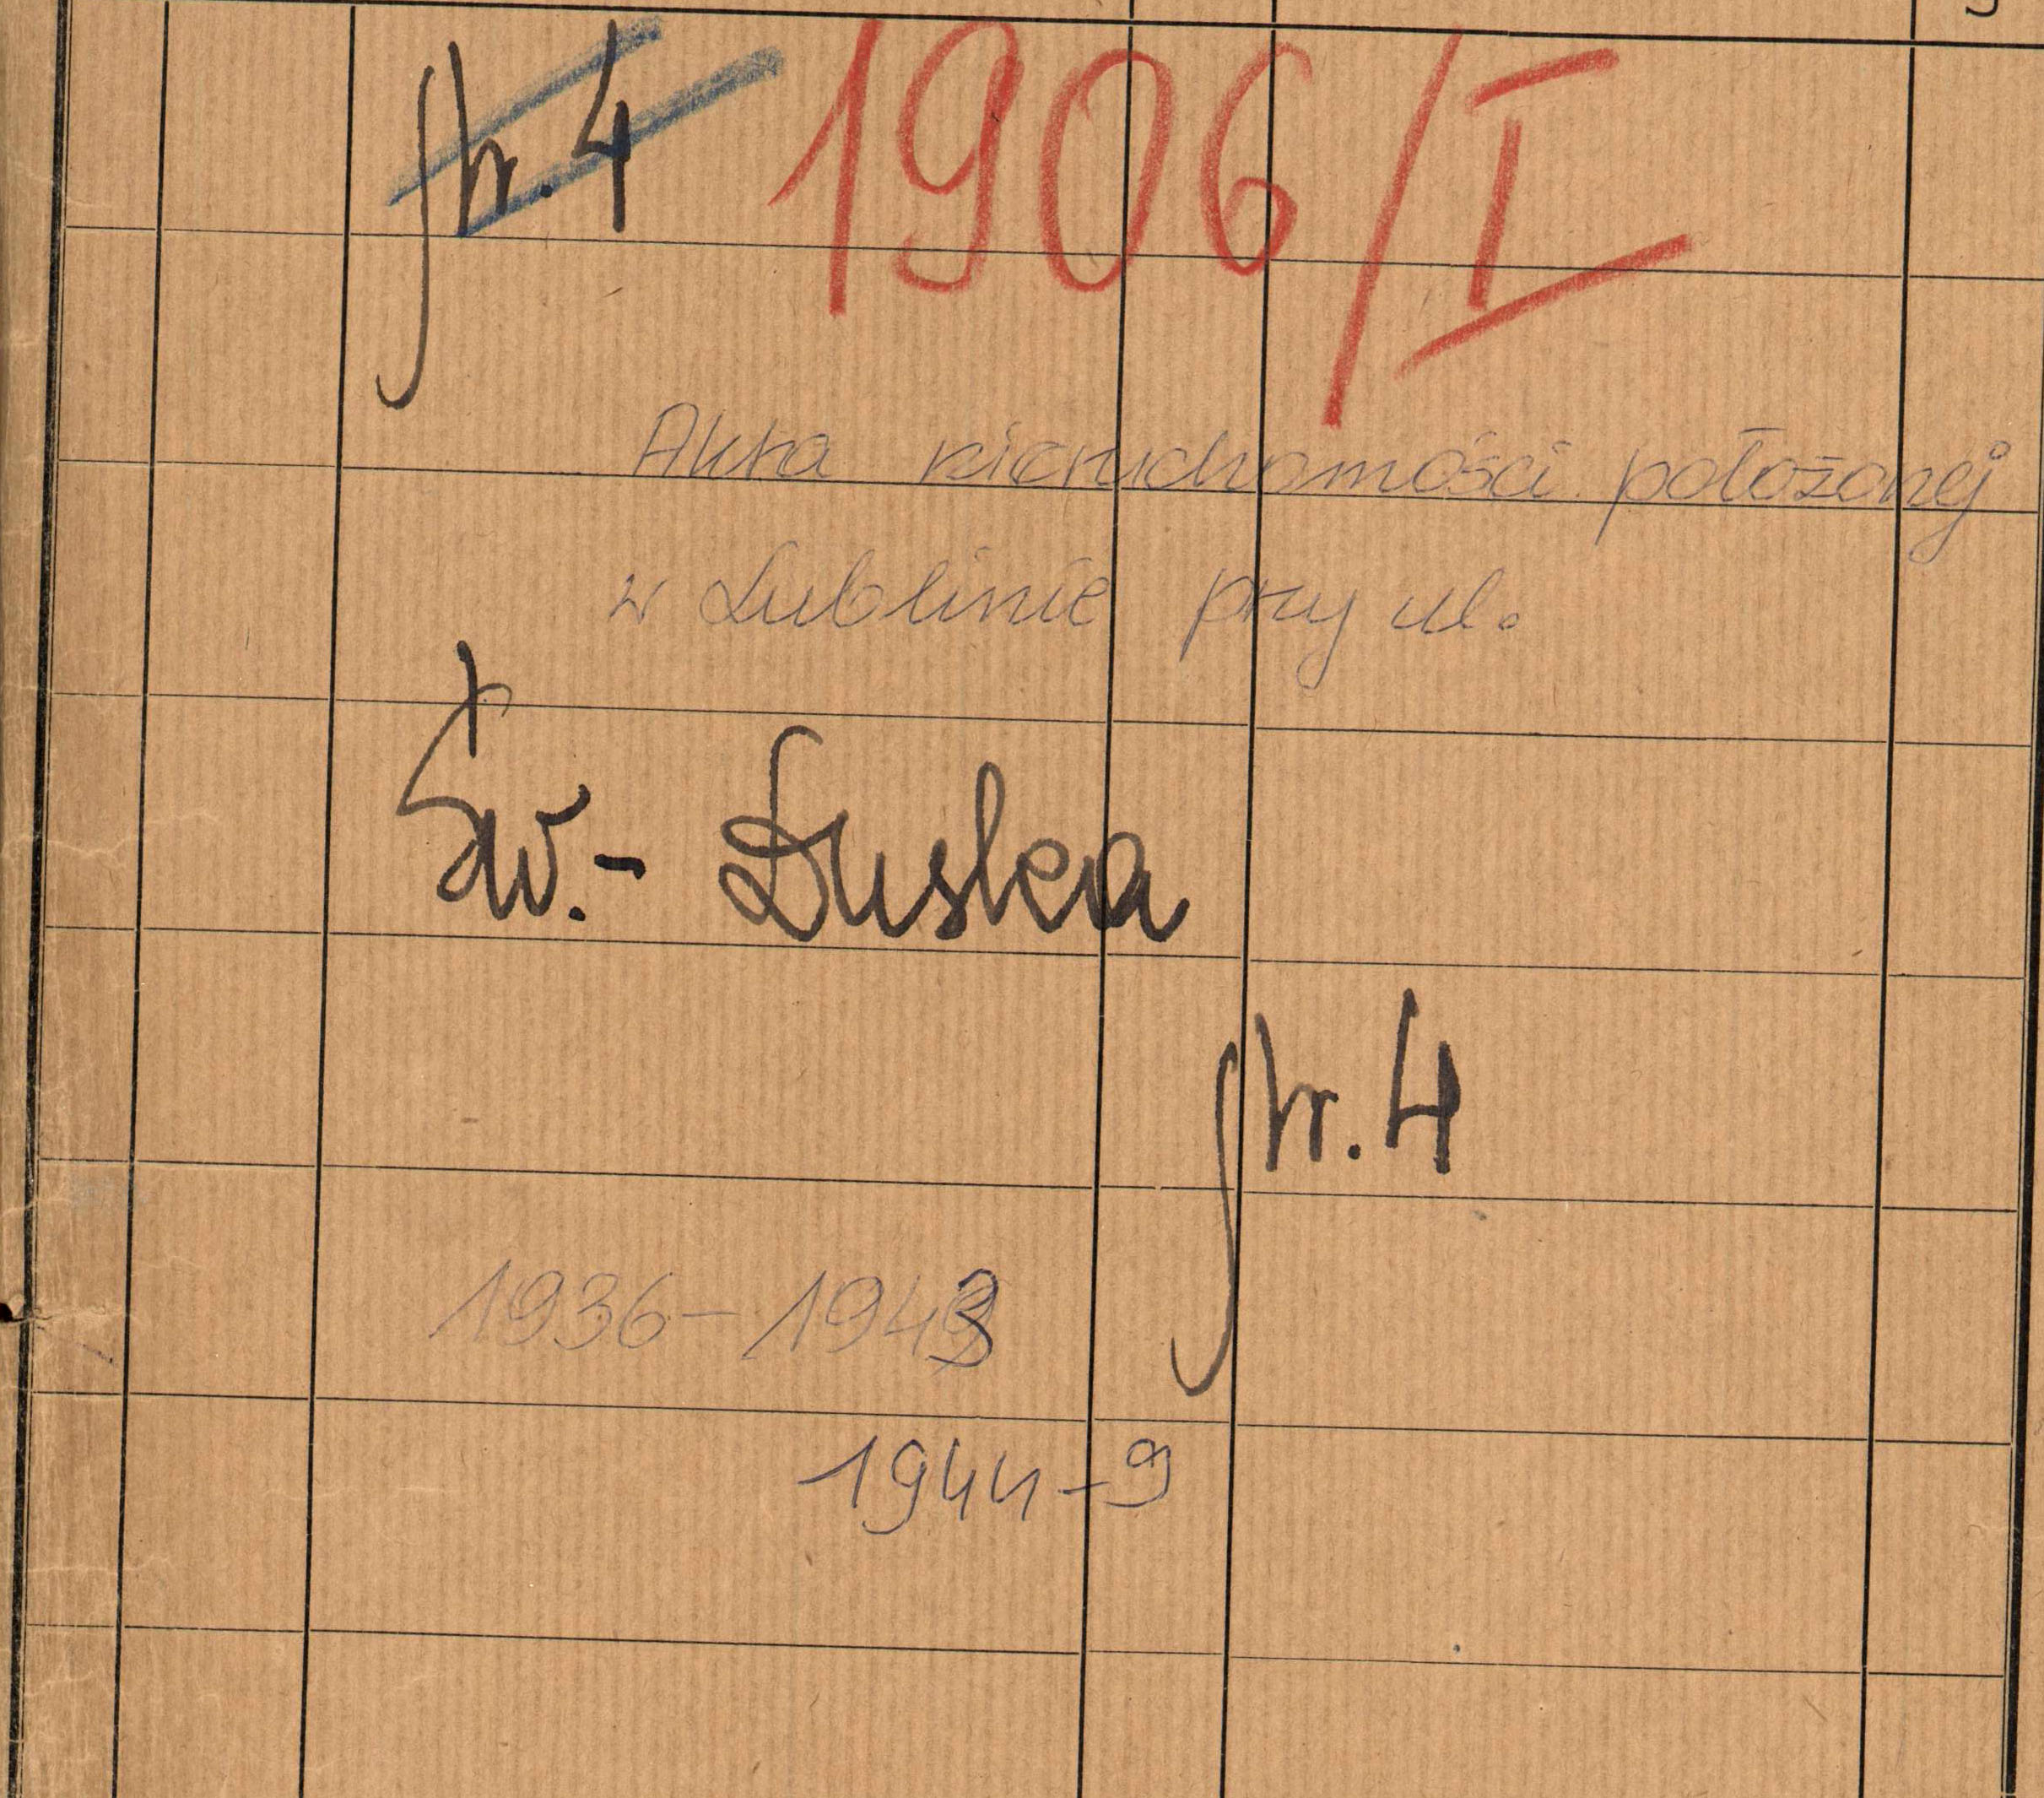 Nr. 4 1906/I
Akta nieruchomości położonej
w Lublinie przy ul.
Św.-Duska
Nr. 4
1936-1943
1944-9